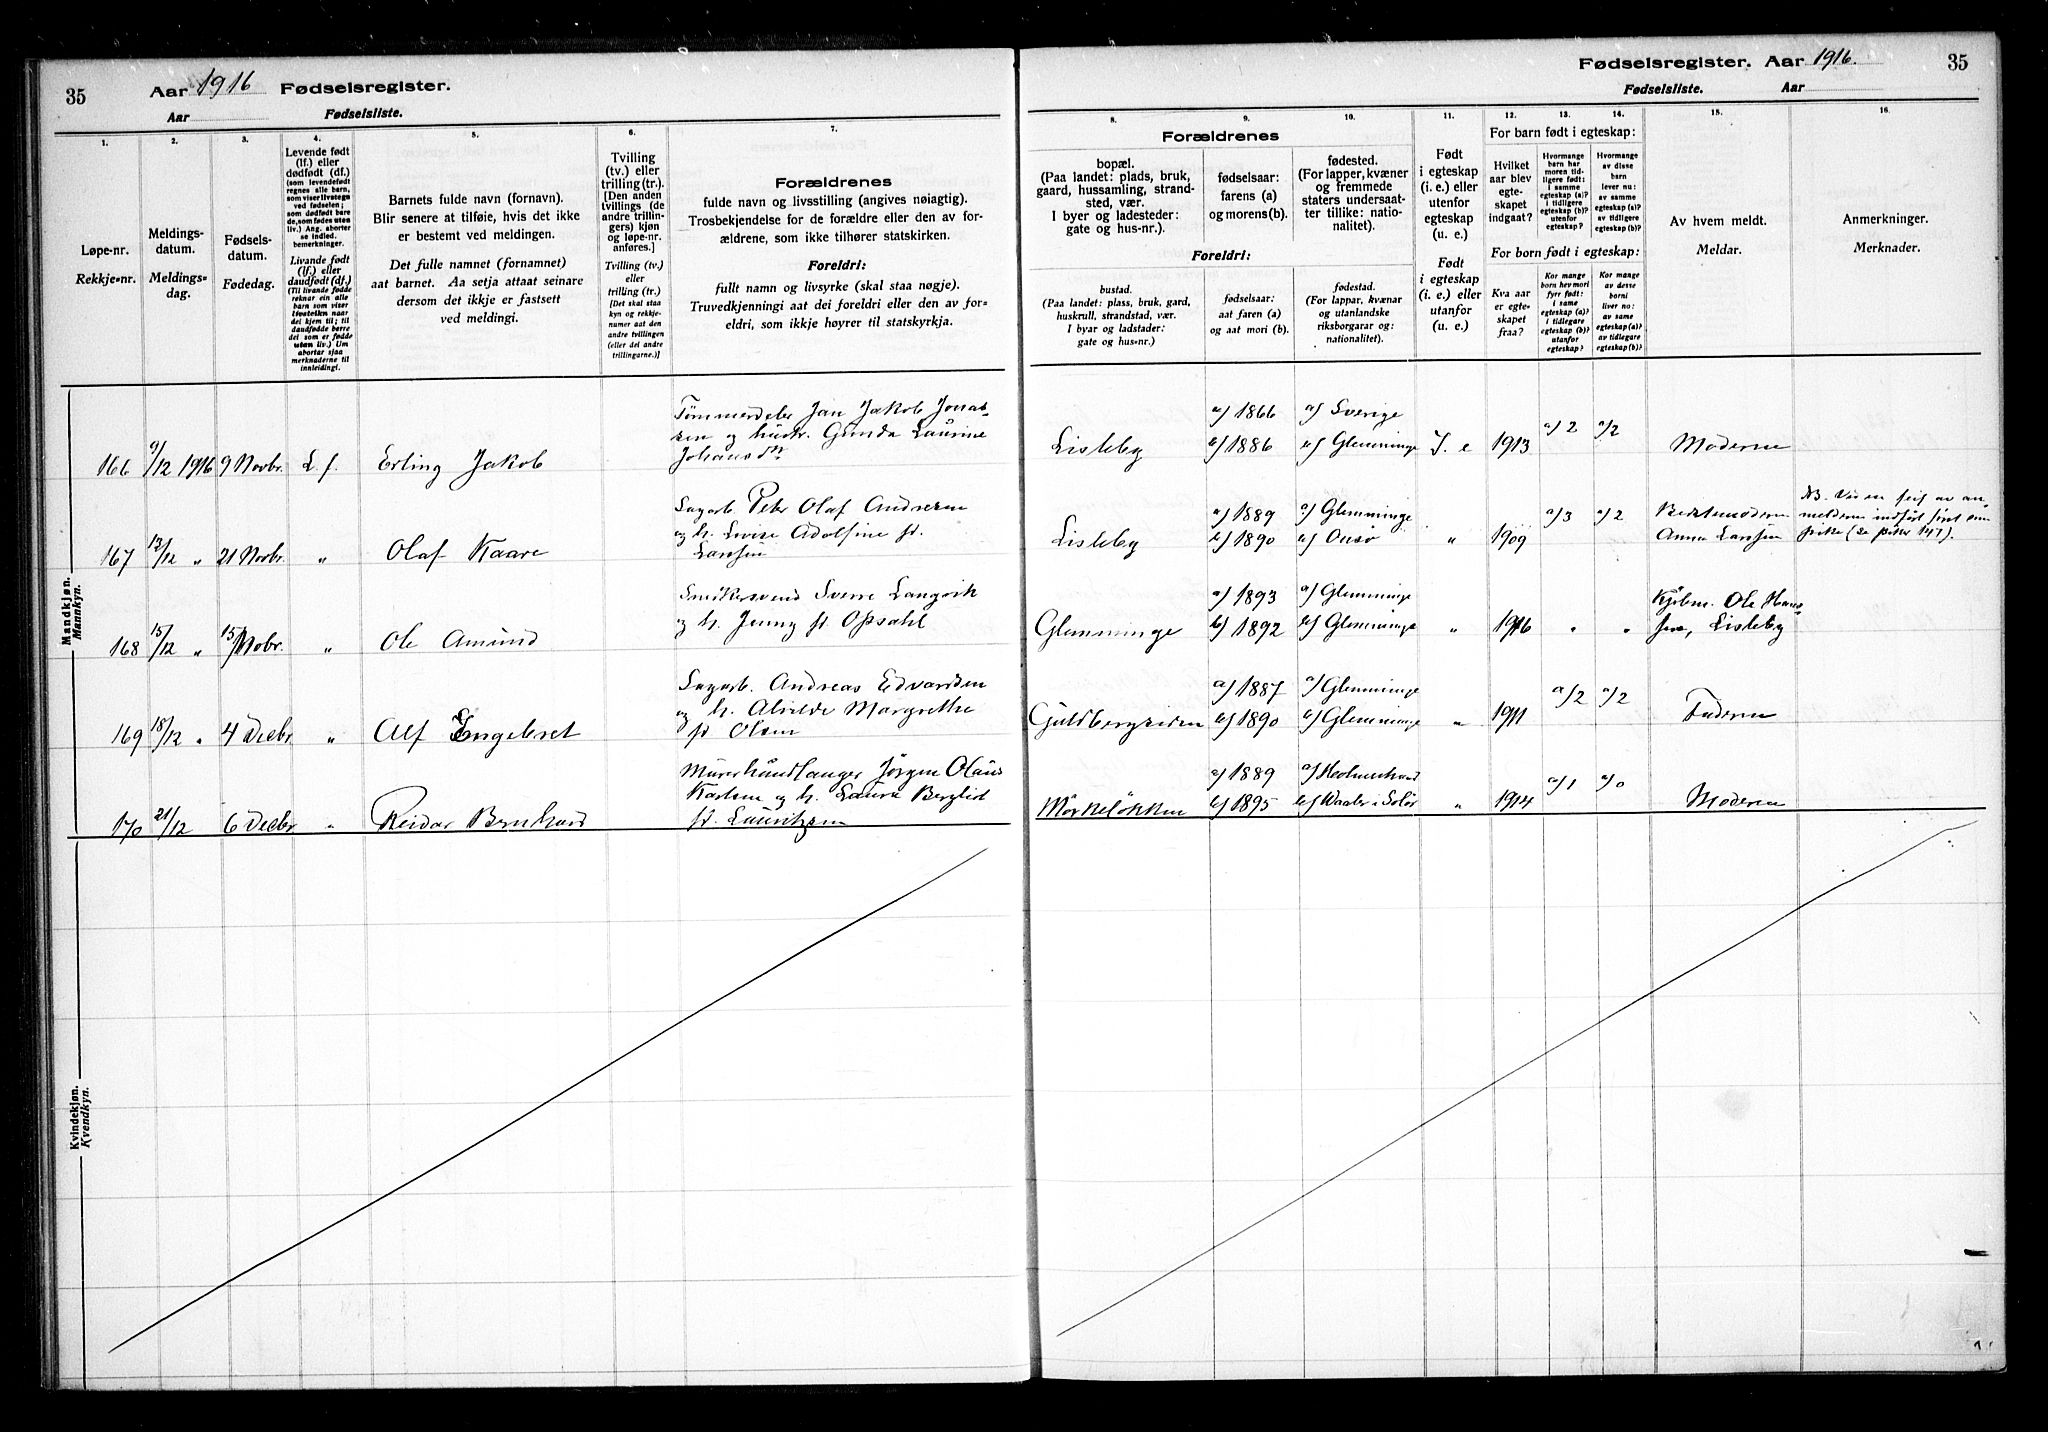 35
Aar 1916 Fødselsregister.
Aar Fødselsliste.
1.
2.
3.
4.
5.
6.
7.
Løpe-nr.
Rekkje=nr.
Meldings-
datum.
Meldings=
dag.
Fødsels-
datum.
Fødedag.
Levende født
(lf.) eller
dødfødt (df.)
(som levendefødt
regnes alle barn,
som viser livstegn
ved fødselen;
som dødfødt bare
de, som fødes uten
liv.) Ang. aborter
se indled.
bemerkninger.
Livande født
(lf.) eller
daudfødt (df.)
(Til livande fødde
reknar ein alle
born som viser
livsteikn naar
dei kjem til; til
daudfødde berre
dei som er fødde
utan liv.) Um
abortar sjaa
merknaderne til
innleidingi.
Barnets fulde navn (fornavn).
Blir senere at tilføie, hvis det ikke
er bestemt ved meldingen.
Det fulle namnet (fornamnet)
aat barnet. Aa setja attaat seinare
dersom det ikkje er fastsett
ved meldingi.
Tvilling
(tv.) eller
trilling (tr.).
[Den anden
tvillings (de
andre trillin-
gers) kjøn
og løpe-nr.
anføres.]
Tvilling (tv.)
eller
trilling (tr.)
[Det skal staa
kyn og rekkje-
numer aat den
andre tvillingen
(eller dei andre
trillingarne.)]
Forældrenes
fulde navn og livsstilling (angives nøiagtig).
Trosbekjendelse for de forældre eller den av for-
ældrene, som ikke tilhører statskirken.
Foreldri:
fullt namn og livsyrke (skal staa nøgje).
Truvedkjenningi aat dei foreldri eller den av for-
eldri, som ikkje høyrer til statskyrkja.
Mandkjøn.
Mannkyn.
166 9/12 1916 9 Novbr. L. f. Erling Jakob
Tømmerdeler Jan Jakob Jonas-
sen og hustr. Gunda Laurine
Johansdn
167 13/12 " 21 Novbr. " Olaf Kaare
Sagarb. Peter Olaf Andresen
og h. Lovise Adolfine f.
Larssen
168 15/12 " 15/ Nobr. " Ole Amund
Snekkersvend Sverre Langvik
og h. Jenny f. Opsahl
169 18/12 " 4 Decbr " Alf Engebret
Sagarb. Andreas Edvardsen
og h. Alvilde Margrethe
f. Olsen
170 21/12 6 Decbr " Reidar Bernhard
Murerhandlanger Jörgen Olaus
Karlsen og h. Laura Bergliot
f. Lauritzen
Kvindekjøn.
Kvendkyn.
Fødselsregister. Aar 1916. 35
Fødselsliste. Aar
8.
9.
10.
11.
12.
13.
14.
15.
16.
Forældrenes
bopæl.
(Paa landet: plads, bruk,
gaard, hussamling, strand-
sted, vær.
I byer og ladesteder:
gate og hus-nr.).
fødselsaar:
farens (a)
og morens (b).
fødested.
(For lapper, kvæner
og fremmede
staters undersaat-
ter tillike: natio-
nalitet).
Foreldri:
bustad.
(Paa landet: plass, bruk, gard,
huskrull, strandstad, vær.
I byar og ladstader:
gate og hus=nr.)
fødselsaar:
aat faren (a)
og aat mori (b).
fødestad.
(For lappar, kvænar
og utanlandske
riksborgarar og:
nationalitet).
Født
i egteskap
(i. e.) eller
utenfor
egteskap
(u. e.)
Født
i egteskap
(i. e.) eller
utanfor
(u. e.)
For barn født i egteskap:
Hvilket
aar blev
egte-
skapet
indgaat?
Hvormange
barn har
moren tid-
ligere født:
i samme
egteskap (a)?
i tidligere
egteskap (b)?
utenfor
egteskap?
Hvormange
av disse
barn
lever nu:
av samme
egteskap (a)?
av tidligere
egteskap (b)?
For born født i egteskap:
Kva aar
er egte-
skapet
fraa?
Kor mange
born hev mori
fyrr født:
i same
egteskap (a)?
i tidlegare
egteskap (b)?
utanfor
egteskap?
Kor mange
av desse
borni
liver nu:
av same
egteskap (a)?
av tidlegare
egteskap (b)?
Av hvem meldt.
Meldar.
Anmerkninger.
Merknader.
Lisleby a/ 1866 b/ 1886 a/ Sverige b/ Glemminge I. e 1913 a/2 a/2 Moderen
Lisleby a/ 1889 b/ 1890 a/ Glemminge b/ Onsø " 1909 a/3 a/2 Bestemoderen
Anna Larssen
NB. Ved en feil av an-
melderen indført först som
pike (se piker 147).
Glemminge a/ 1893 b/ 1892 a/ Glemminge b/ Glemminge " 1916 " " Kjöbm. Ole Hans-
sen, Lisleby
Guldbergsiden a/ 1887 b/ 1890 a/ Glemminge b/ Glemminge " 1911 a/2 a/2 Faderen
Mörkeløkken a/ 1889 b/ 1895 a/ Holmestrand b/ Vaaler i Solør " 1914 a/1 a/0 Moderen